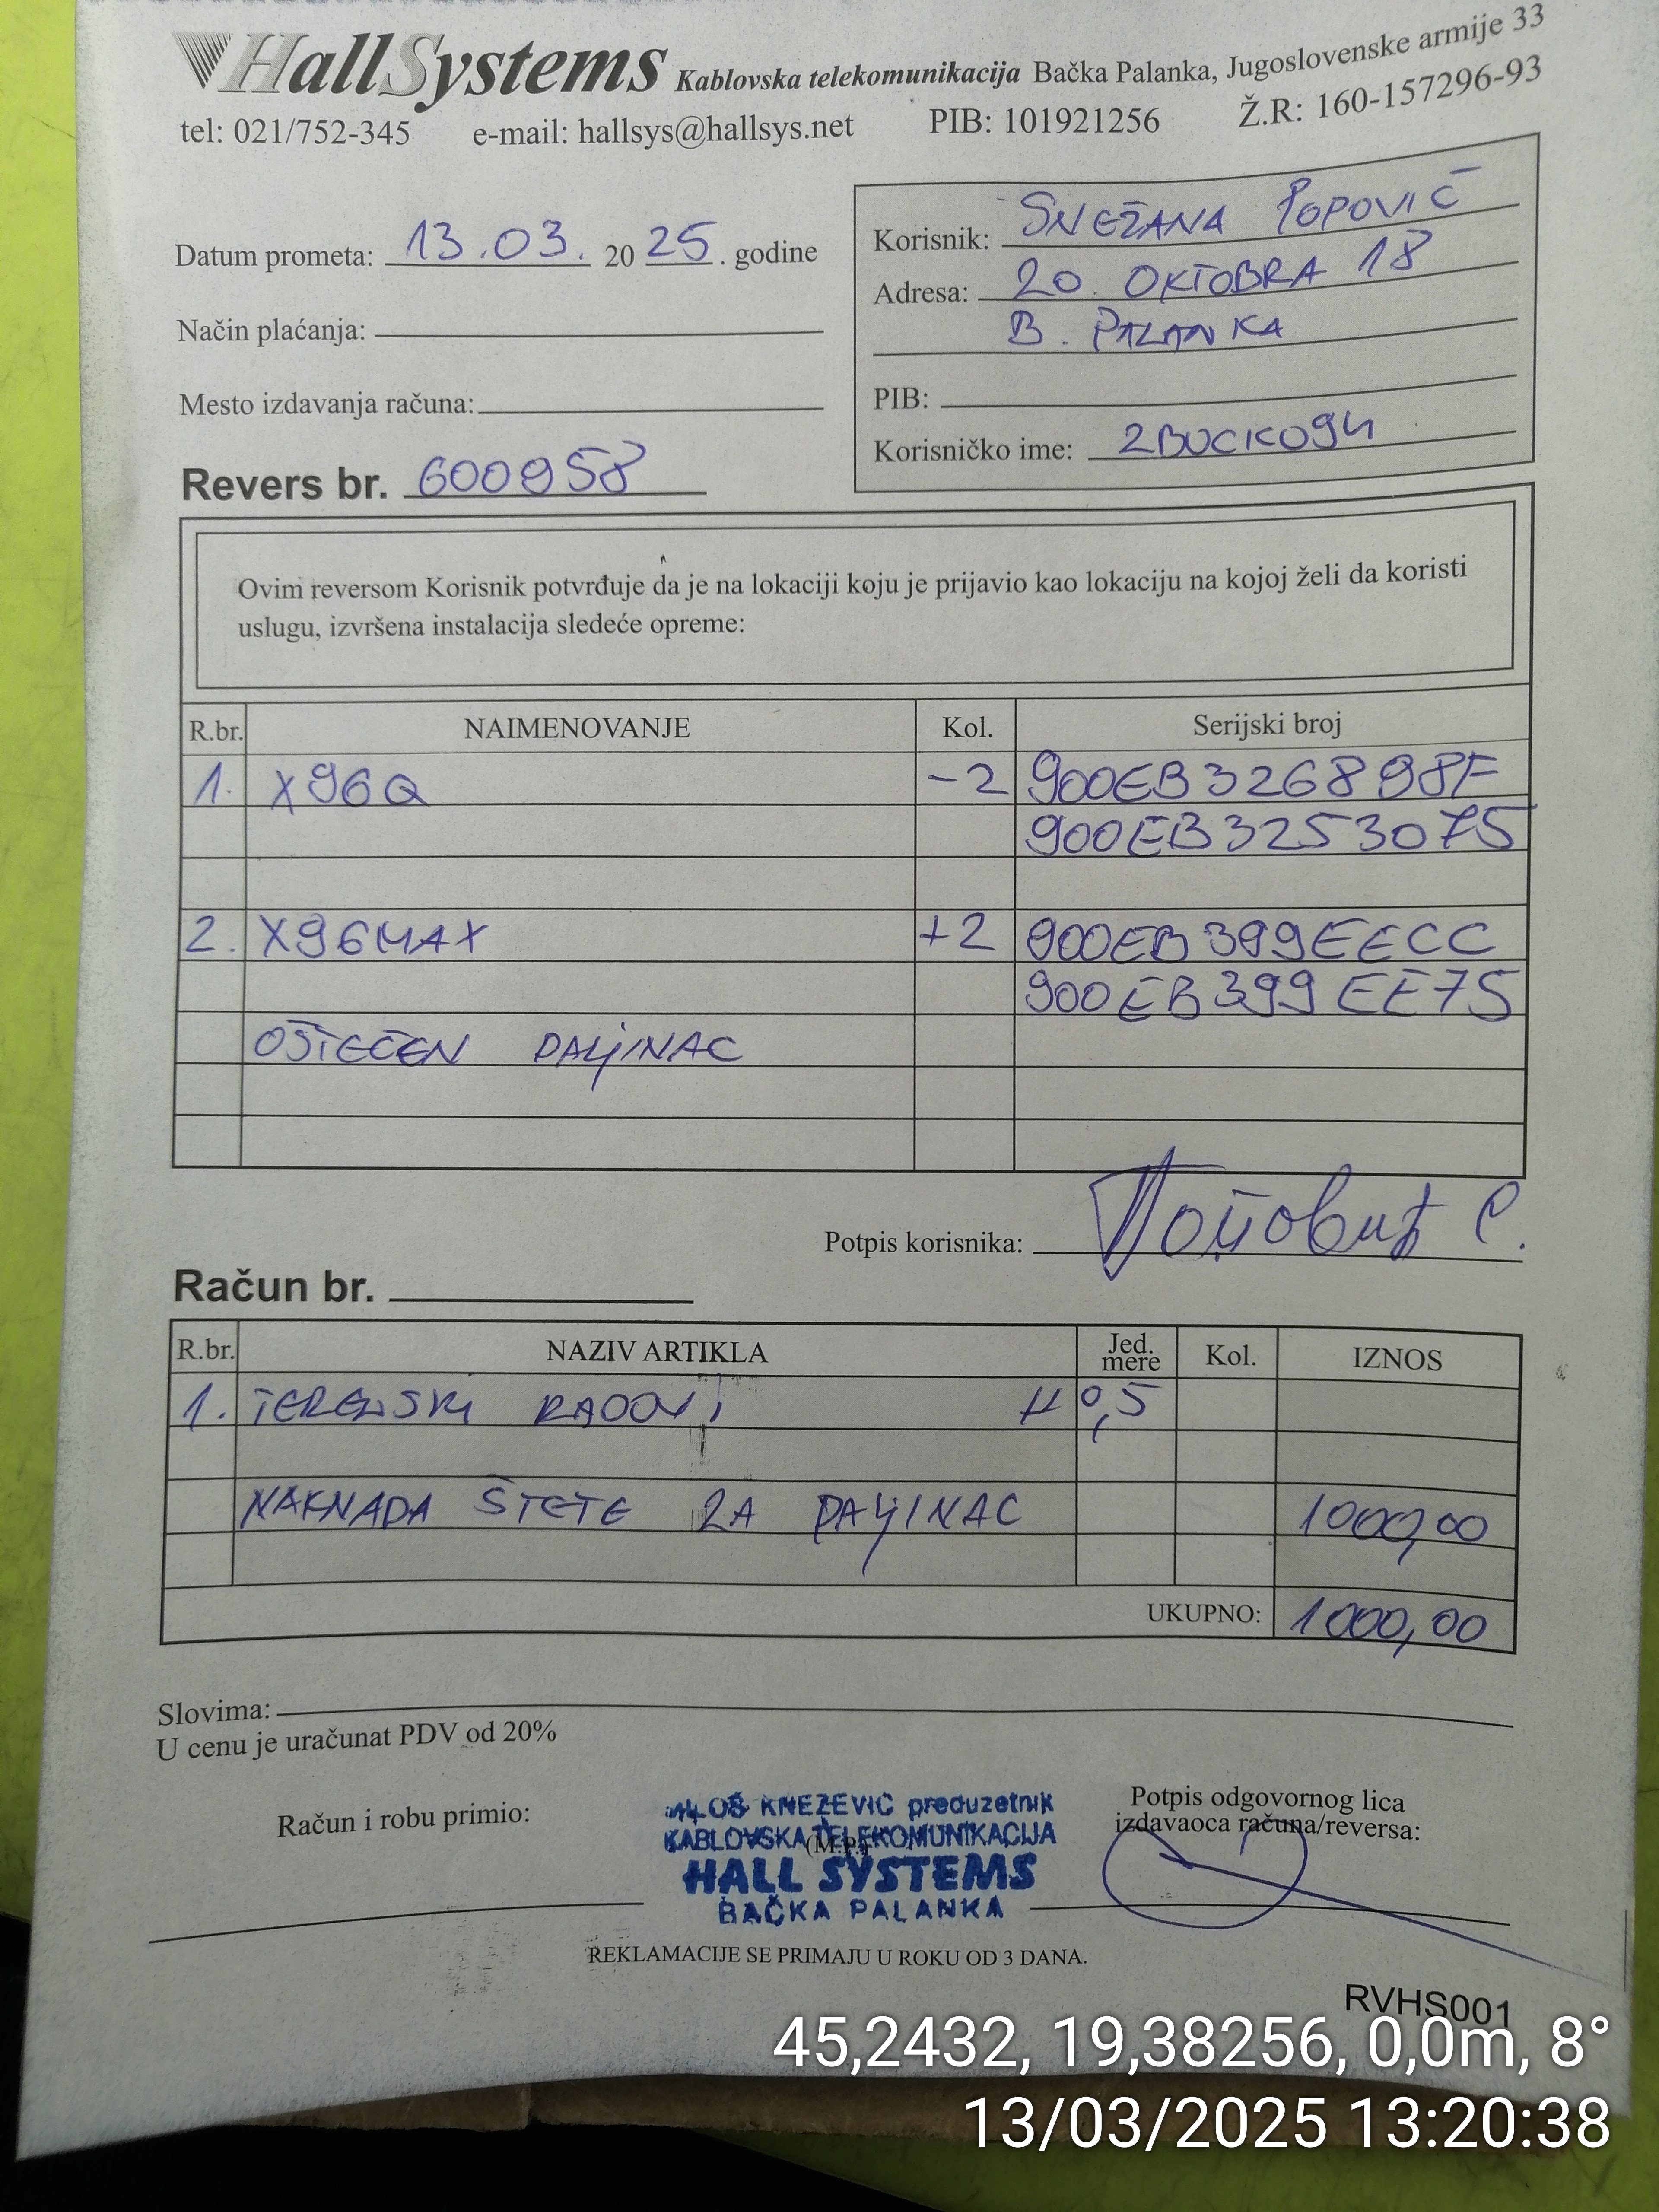 HallSystems Kablovska telekomunikacija Bačka Palanka, Jugoslovenske armije 33
tel: 021/752-345 e-mail: hallsys@hallsys.net PIB: 101921256 Ž.R: 160-157296-93
Datum prometa: 13.03. 2025. godine
Način plaćanja:
Mesto izdavanja računa:
Revers br. 600958
Korisnik: SNEŽANA POPOVIĆ
Adresa: 20. OKTOBRA 18
B. PALANKA
PIB:
Korisničko ime: ZBUCKO94
Ovim reversom Korisnik potvrđuje da je na lokaciji koju je prijavio kao lokaciju na kojoj želi da koristi
uslugu, izvršena instalacija sledeće opreme:
R.br. NAIMENOVANJE Kol. Serijski broj
1. X96Q -2 900EB326898F
900EB3253075
2. X96MAX +2 900EB399EECC
900EB399EE75
OŠTEĆEN DALJINAC
Potpis korisnika: Поповић С.
Račun br.
R.br. NAZIV ARTIKLA Jed. mere Kol. IZNOS
1. TERENSKI RADOVI H 0,5
NAKNADA ŠTETE ZA DALJINAC 1000,00
UKUPNO: 1000,00
Slovima:
U cenu je uračunat PDV od 20%
Račun i robu primio:
MILOŠ KNEŽEVIĆ preduzetnik
KABLOVSKA TELEKOMUNIKACIJA
(M.P.)
HALL SYSTEMS
BAČKA PALANKA
Potpis odgovornog lica
izdavaoca računa/reversa:
REKLAMACIJE SE PRIMAJU U ROKU OD 3 DANA.
RVHS001
45,2432, 19,38256, 0,0m, 8°
13/03/2025 13:20:38